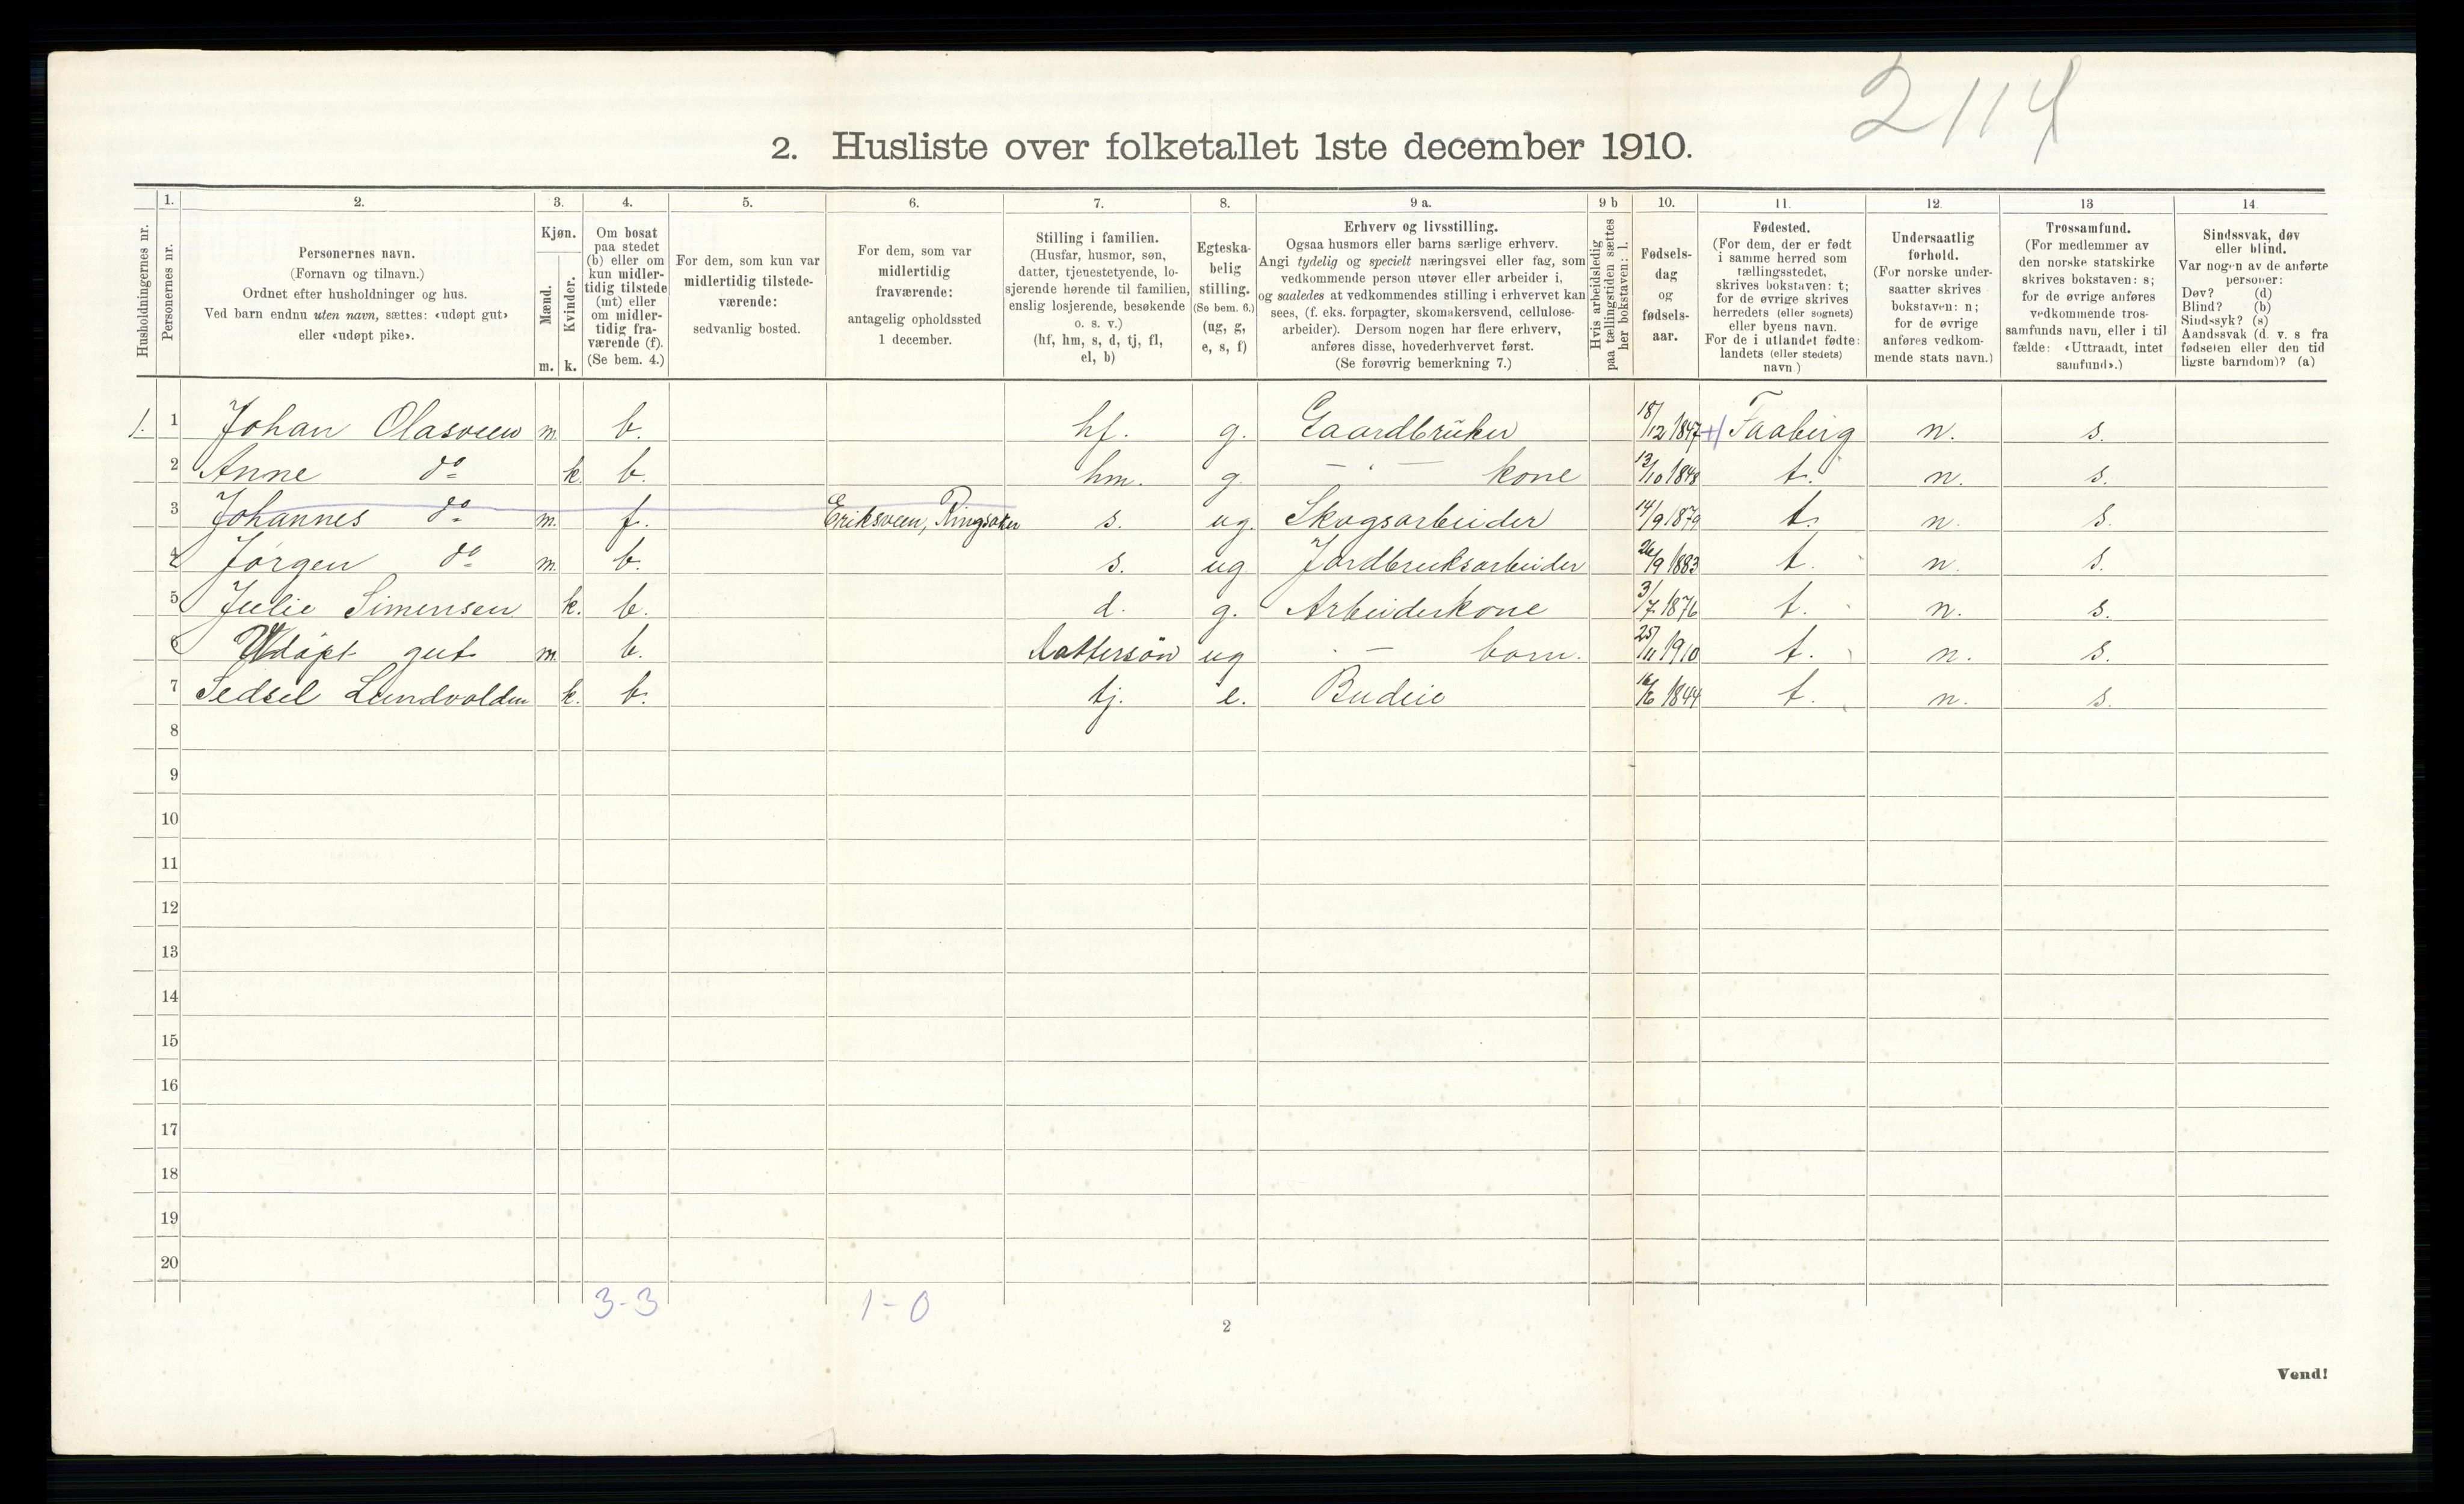 2114
2. Husliste over folketallet 1ste december 1910.
Husholdningernes nr.
1. Personernes nr.
2. Personernes navn.
(Fornavn og tilnavn.)
Ordnet efter husholdninger og hus.
Ved barn endnu uten navn, sættes: «udøpt gut»
eller «udøpt pike».
3. Kjøn.
Mænd. m.
Kvinder. k.
4. Om bosat
paa stedet
(b) eller om
kun midler-
tidig tilstede
(mt) eller
om midler-
tidig fra-
værende (f).
(Se bem. 4.)
5. For dem, som kun var
midlertidig tilstede-
værende:
sedvanlig bosted.
6. For dem, som var
midlertidig
fraværende:
antagelig opholdssted
1 december.
7. Stilling i familien.
(Husfar, husmor, søn,
datter, tjenestetyende, lo-
sjerende hørende til familien,
enslig losjerende, besøkende
o. s. v.)
(hf, hm, s, d, tj, fl,
el, b)
8. Egteska-
belig
stilling.
(Se bem. 6.)
(ug, g,
e, s, f)
9 a. Erhverv og livsstilling.
Ogsaa husmors eller barns særlige erhverv.
Angi tydelig og specielt næringsvei eller fag, som
vedkommende person utøver eller arbeider i,
og saaledes at vedkommendes stilling i erhvervet kan
sees, (f. eks. forpagter, skomakersvend, cellulose-
arbeider). Dersom nogen har flere erhverv,
anføres disse, hovederhvervet først.
(Se forøvrig bemerkning 7.)
9 b Hvis arbeidsledig
paa tællingstiden sættes
her bokstaven: l.
10. Fødsels-
dag
og
fødsels-
aar.
11. Fødested.
(For dem, der er født
i samme herred som
tællingsstedet,
skrives bokstaven: t;
for de øvrige skrives
herredets (eller sognets)
eller byens navn.
For de i utlandet fødte:
landets (eller stedets)
navn.)
12. Undersaatlig
forhold.
(For norske under-
saatter skrives
bokstaven: n;
for de øvrige
anføres vedkom-
mende stats navn.)
13 Trossamfund.
(For medlemmer av
den norske statskirke
skrives bokstaven: s;
for de øvrige anføres
vedkommende tros-
samfunds navn, eller i til
fælde: «Uttraadt, intet
samfund».)
14 Sindssvak, døv
eller blind.
Var nogen av de anførte
personer:
Døv? (d)
Blind? (b)
Sindssyk? (s)
Aandssvak (d. v. s fra
fødselen eller den tid
ligste barndom)? (a)
1. 1 Johan Olasveen m. b. hf. g. Gaardbruker 18/12 1847 Faaberg n. s.
2 Anne do k. b. hm. g. — " — kone 13/10 1848 t. n. s.
3 Johannes do m. f. Eriksveen, Ringsaker s. ug. Skogsarbeider 14/9 1879 t. n. s.
4 Jørgen do m. b. s. ug Jordbruksarbeider 26/9 1883 t. n. s.
5 Julie Simensen k. b. d. g. Arbeiderkone 3/7 1876 t. n. s.
6 Udøpt gut m. b. dattersøn ug — barn. 25/11 1910 t. n. s.
7 Sedsel Lundvolden k. b. tj. e. Budeie 16/6 1844 t. n. s.
8
9
10
11
12
13
14
15
16
17
18
19
20
3-3 1-0
2
Vend!